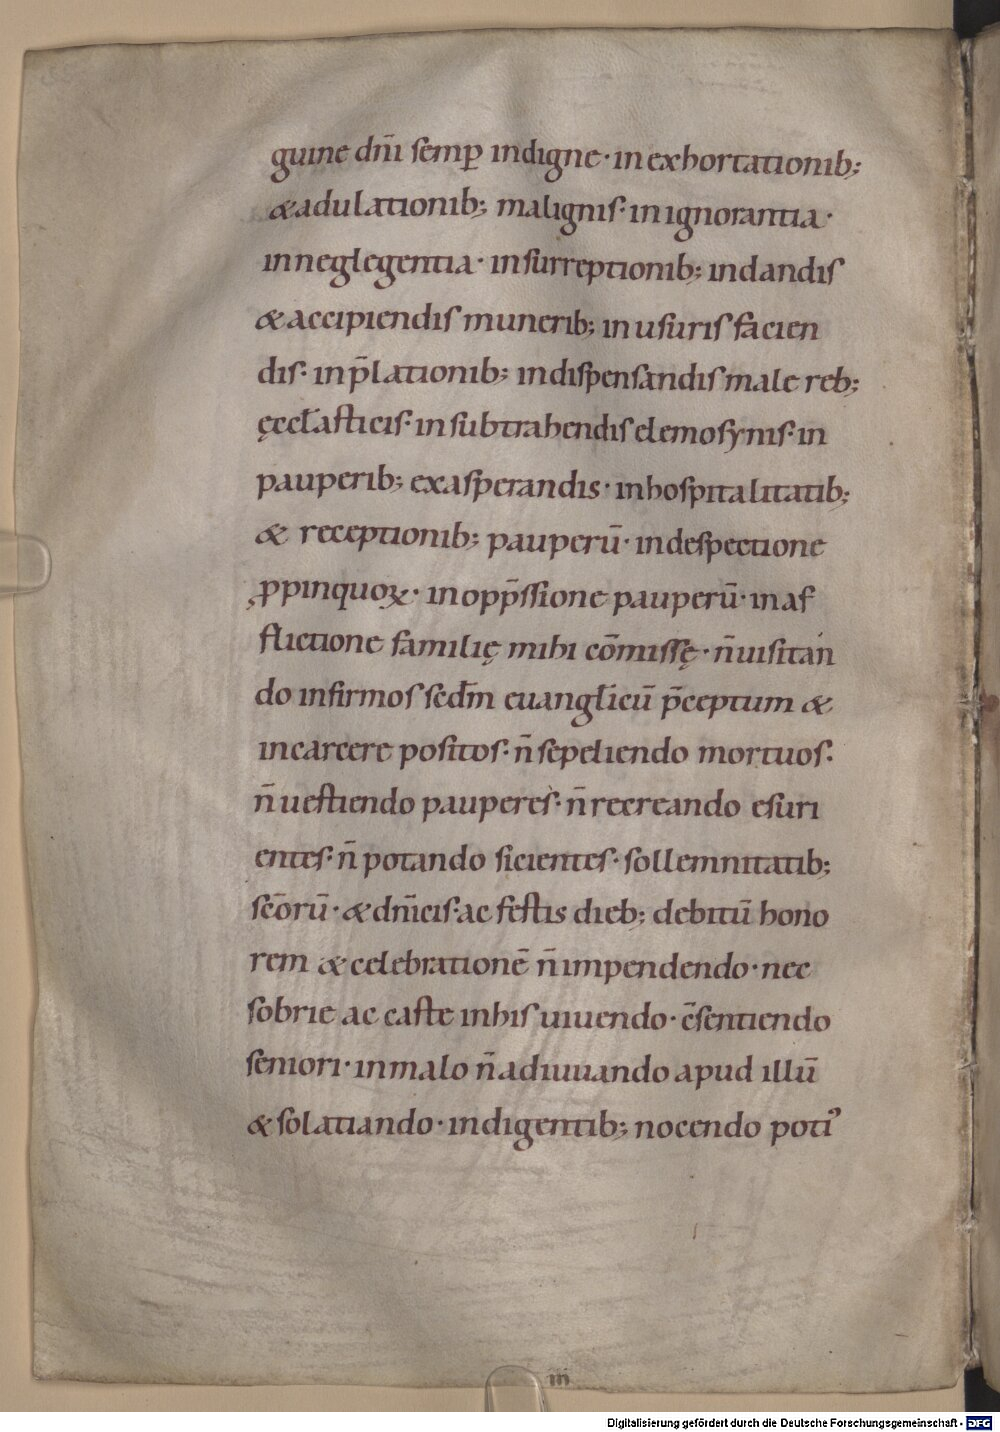 guine dñi semꝑ indigne · in exhortationib;
& adulationib; malignis · in ignorantia ·
in neglegentia · in surreptionib; in dandis
& accipiendis munerib; in usuris facien
dis · in p̄lationib; in dispensandis male reb;
ęccl̄asticis · in subtrahendis elemosynis · in
pauperib; exasperandis · in hospitalitatib;
& receptionib; pauperū · in despectione
ꝓpinquoꝝ · in opp̄ssione pauperū · in af
flictione familię mihi cōmissę · n̄ uisitan
do infirmos secd̄m euangl̄icū p̄ceptum &
in carcere positos · n̄ sepeliendo mortuos ·
n̄ uestiendo pauperes · n̄ recreando esuri
entes · n̄ potando sicientes · sollemnitatib;
sc̄orū · & dn̄icis · ac festis dieb; debitū hono
rem & celebrationē n̄ impendendo · nec
sobrie ac caste in his uiuendo · c̄sentiendo
seniori · in malo n̄ adiuuando apud illū
& solatiando · indigentib; nocendo potiꝰ
m
Digitalisierung gefördert durch die Deutsche Forschungsgemeinschaft - DFG